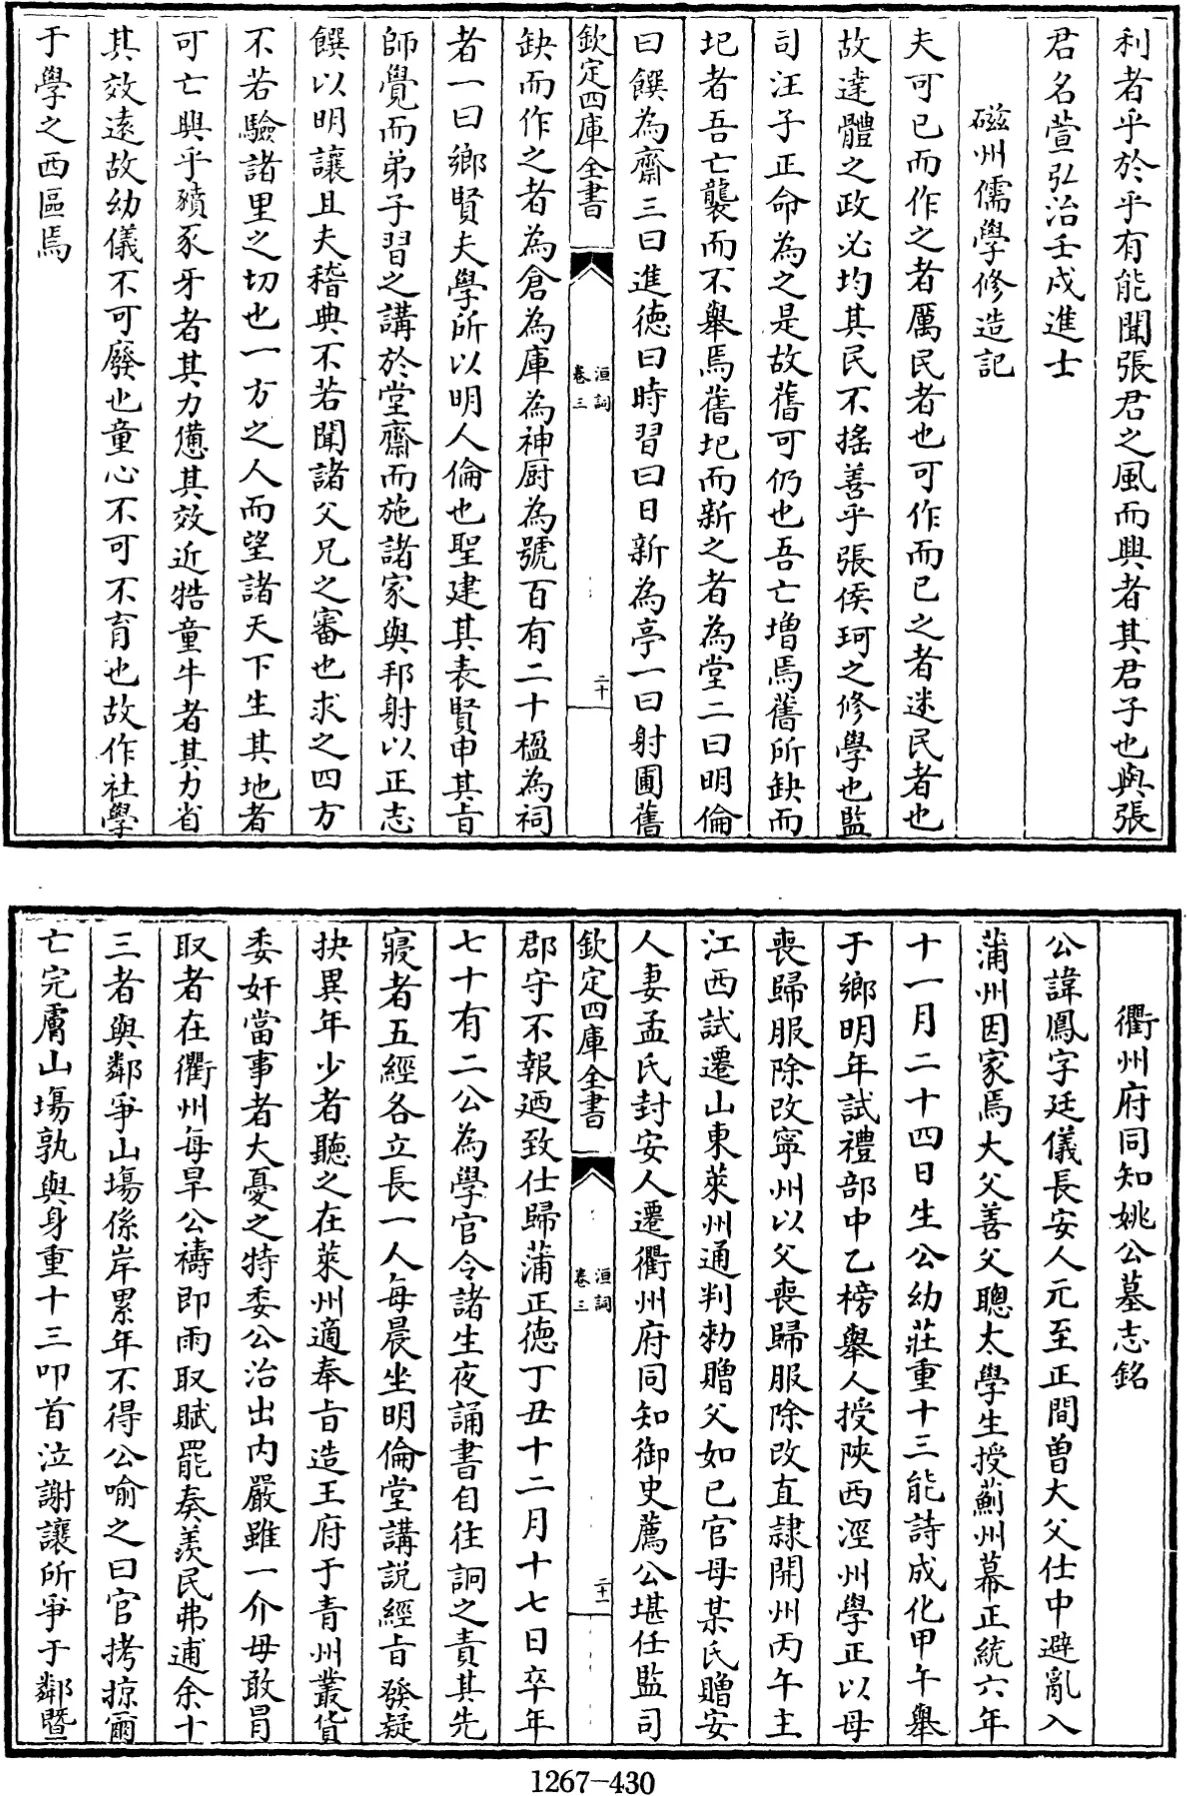 利者乎於乎有能聞張君之風而興者其君子也與張
君名萱弘治壬戌進士
磁州儒學修造記
夫可已而作之者厲民者也可作而已之者迷民者也
故達體之政必均其民不搖善乎張侯珂之修學也監
司汪子正命為之是故舊可仍也吾亡増焉舊所缺而
圯者吾亡襲而不舉焉舊圯而新之者為堂二曰明倫
曰饌為齋三曰進德曰時習曰日新為亭一曰射圃舊
欽定四庫全書
洹詞
卷三
二十
缺而作之者為倉為庫為神厨為號百有二十楹為祠
者一曰鄉賢夫學所以明人倫也聖建其表賢申其㫖
師覺而弟子習之講於堂齋而施諸家與邦射以正志
饌以明讓且夫稽典不若聞諸父兄之審也求之四方
不若驗諸里之切也一方之人而望諸天下生其地者
可亡興乎豶豕牙者其力憊其效近牿童牛者其力省
其效逺故幼儀不可廢也童心不可不育也故作社學
于學之西區焉
衢州府同知姚公墓志銘
公諱鳳字廷儀長安人元至正間曽大父仕中避亂入
蒲州因家焉大父善父聰太學生授薊州幕正統六年
十一月二十四日生公幼莊重十三能詩成化甲午舉
于鄉明年試禮部中乙榜舉人授陜西涇州學正以母
喪歸服除改寧州以父喪歸服除改直隷開州丙午主
江西試遷山東萊州通判勑贈父如已官母某氏贈安
人妻孟氏封安人遷衢州府同知御史薦公堪任監司
欽定四庫全書
洹詞
卷三
二十一
郡守不報廼致仕歸蒲正德丁丑十二月十七日卒年
七十有二公為學官令諸生夜誦書自往詗之責其先
寢者五經各立長一人每晨坐明倫堂講説經㫖發疑
抉異年少者聽之在萊州適奉㫖造王府于青州叢貨
委奸當事者大憂之特委公治出内嚴雖一介毋敢冐
取者在衢州每旱公禱即雨取賦罷奏羡民弗逋余十
三者與鄰爭山塲係岸累年不得公喻之曰官拷掠爾
亡完膚山塲孰與身重十三叩首泣謝讓所爭于鄰暨
1267—430